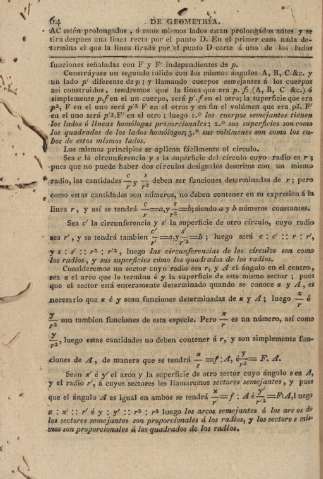 64 DE GEOMETRÍA.
AC estén prolongados, ó unos mismos lados estan prolongados antes y se
tira despues una linea recta por el punto D. En el primer caso nada de-
termina el que la linea tirada por el punto D corte á uno de los lados
funciones señaladas con F y F' independientes de p.
Constrúyase un segundo sólido con los mismos ángulos A, B, C &c. y
un lado p' diferente de p; y llamando cuerpos semejantes á los cuerpos
asi construidos, tendremos que la linea que era p. f. (A, B, C &c.) ó
simplemente p.f en el un cuerpo, será p'.f en el otro; la superficie que era
p², F en el uno será p'² F en el otro y en fin el volúmen que era p³. F'
en el uno será p'³.F' en el otro: luego 1.º los cuerpos semejantes tienen
los lados ó lineas homólogas proporcionales; 2.º sus superficies son como
los quadrados de los lados homólogos; 3.º sus volúmenes son como los cu-
bos de estos mismos lados.
Los mismos principios se aplican fácilmente al círculo.
Sea c la circunferencia y s la superficie del círculo cuyo radio es r;
pues que no puede haber dos círculos desiguales descritos con un mismo
radio, las cantidades c/r y s/r² deben ser funciones determinadas de r; pero
como estas cantidades son números, no deben contener en su expresion á la
linea r, y asi se tendrá c/r =a, y s/r² =b; siendo a y b números constantes.
Sea c' la circunferencia y s' la superficie de otro círculo, cuyo radio
sea r', y se tendrá tambien c'/r' =a, y s'/r'² =b; luego será c : c' :: r : r',
y s : s' :: r² : r'², luego las circunferencias de los círculos son como
los radios, y sus superficies como los quadrados de los radios.
Consideremos un sector cuyo radio sea r, y A el ángulo en el centro,
sea x el arco que lo termina é y la superficie de este mismo sector; pues
que el sector está enteramente determinado quando se conoce r y A, es
necesario que x é y sean funciones determinadas de r y A; luego x/r é
y/r² son tambien funciones de esta especie. Pero x/r es un número, asi como
y/r²; luego estas cantidades no deben contener á r, y son simplemente fun-
ciones de A, de manera que se tendrá x/r =f : A, é y/r² = F. A.
Sean x' é y' el arco y la superficie de otro sector cuyo ángulo sea A,
y el radio r', á cuyos sectores les llamaremos sectores semejantes, y pues
que el ángulo A es igual en ambos se tendrá x'/r' =f : A é y'/r'² =F:A, luego
x : x' :: r : r' é y : y' :: r² : r'² luego los arcos semejantes ó los arcos de
los sectores semejantes son proporcionales á los radios, y los sectores semejan-
tes son proporcionales á los quadrados de los radios.